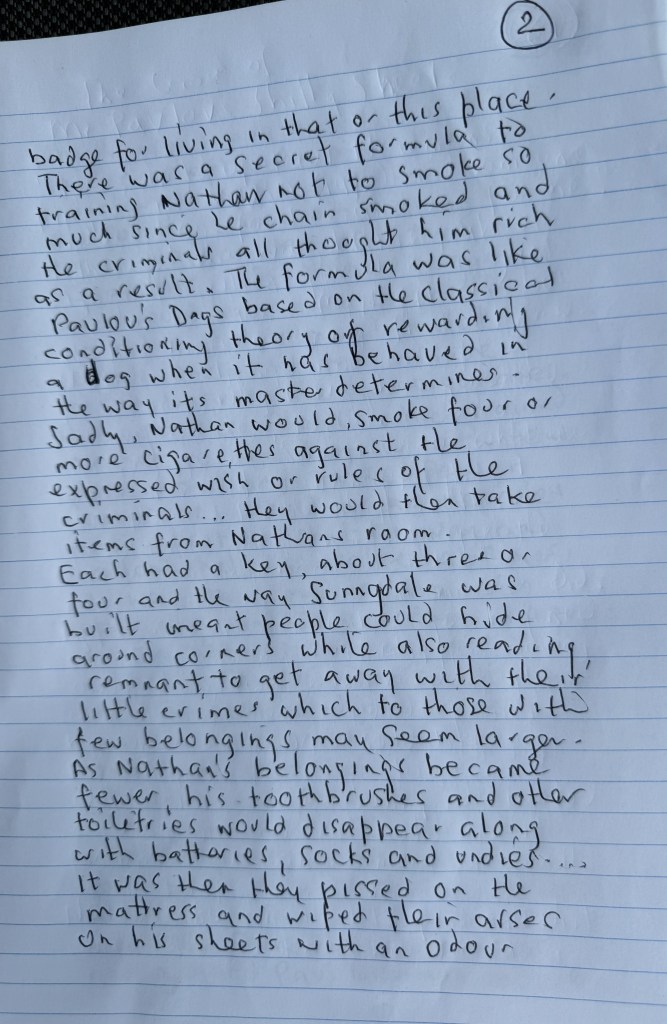 2
badge for living in that or this place.
There was a secret formula to
training Nathan not to smoke so
much since he chain smoked and
the criminals all thought him rich
as a result. The formula was like
Pavlov's Dags based on the classical
conditioning theory of rewarding
a dog when it has behaved in
the way its master determines.
Sadly, Nathan would, smoke four or
more cigarettes against the
expressed wish or rules of the
criminals... they would then take
items from Nathans room.
Each had a key, about three or
four and the way Sunngdale was
built meant people could hide
around corners while also reading
remnant to get away with their
little crimes which to those with
few belongings may seem larger.
As Nathan's belongings became
fewer, his toothbrushes and other
toiletries would disappear along
with batteries, socks and undies....
It was then they pissed on the
mattress and wiped their arses
on his sheets with an odour